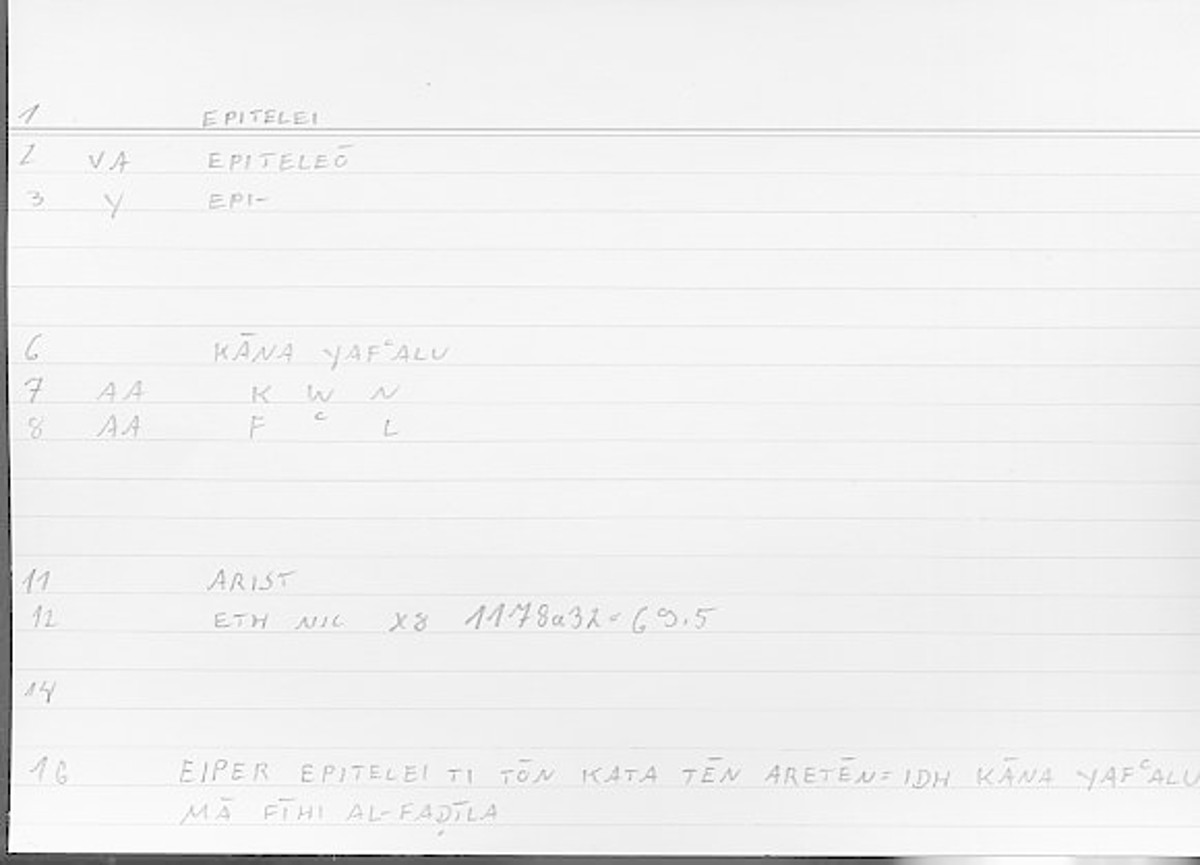 1 EPITELEI
2 VA EPITELEŌ
3 Y EPI-
6 KĀNA YAFᶜALU
7 AA K W N
8 AA F ᶜ L
11 ARIST
12 ETH NIC X8 1178a32 = 69.5
14
16 EIPER EPITELEI TI TŌN KATA TĒN ARETĒN = IDH KĀNA YAFᶜALU
MĀ FĪHI AL-FAḌĪLA